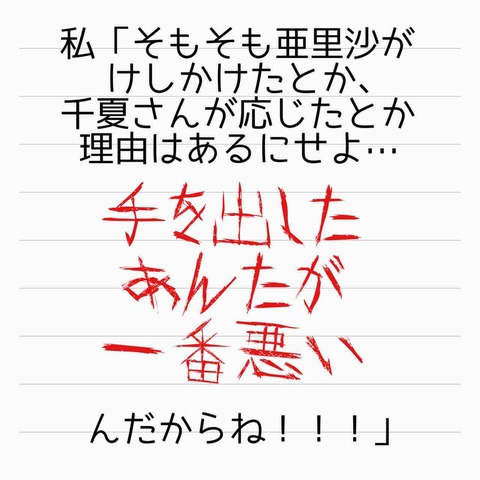 私「そもそも亜里沙が
けしかけたとか、
千夏さんが応じたとか
理由はあるにせよ…
手を出した
あんたが
一番悪い
んだからね！！！」